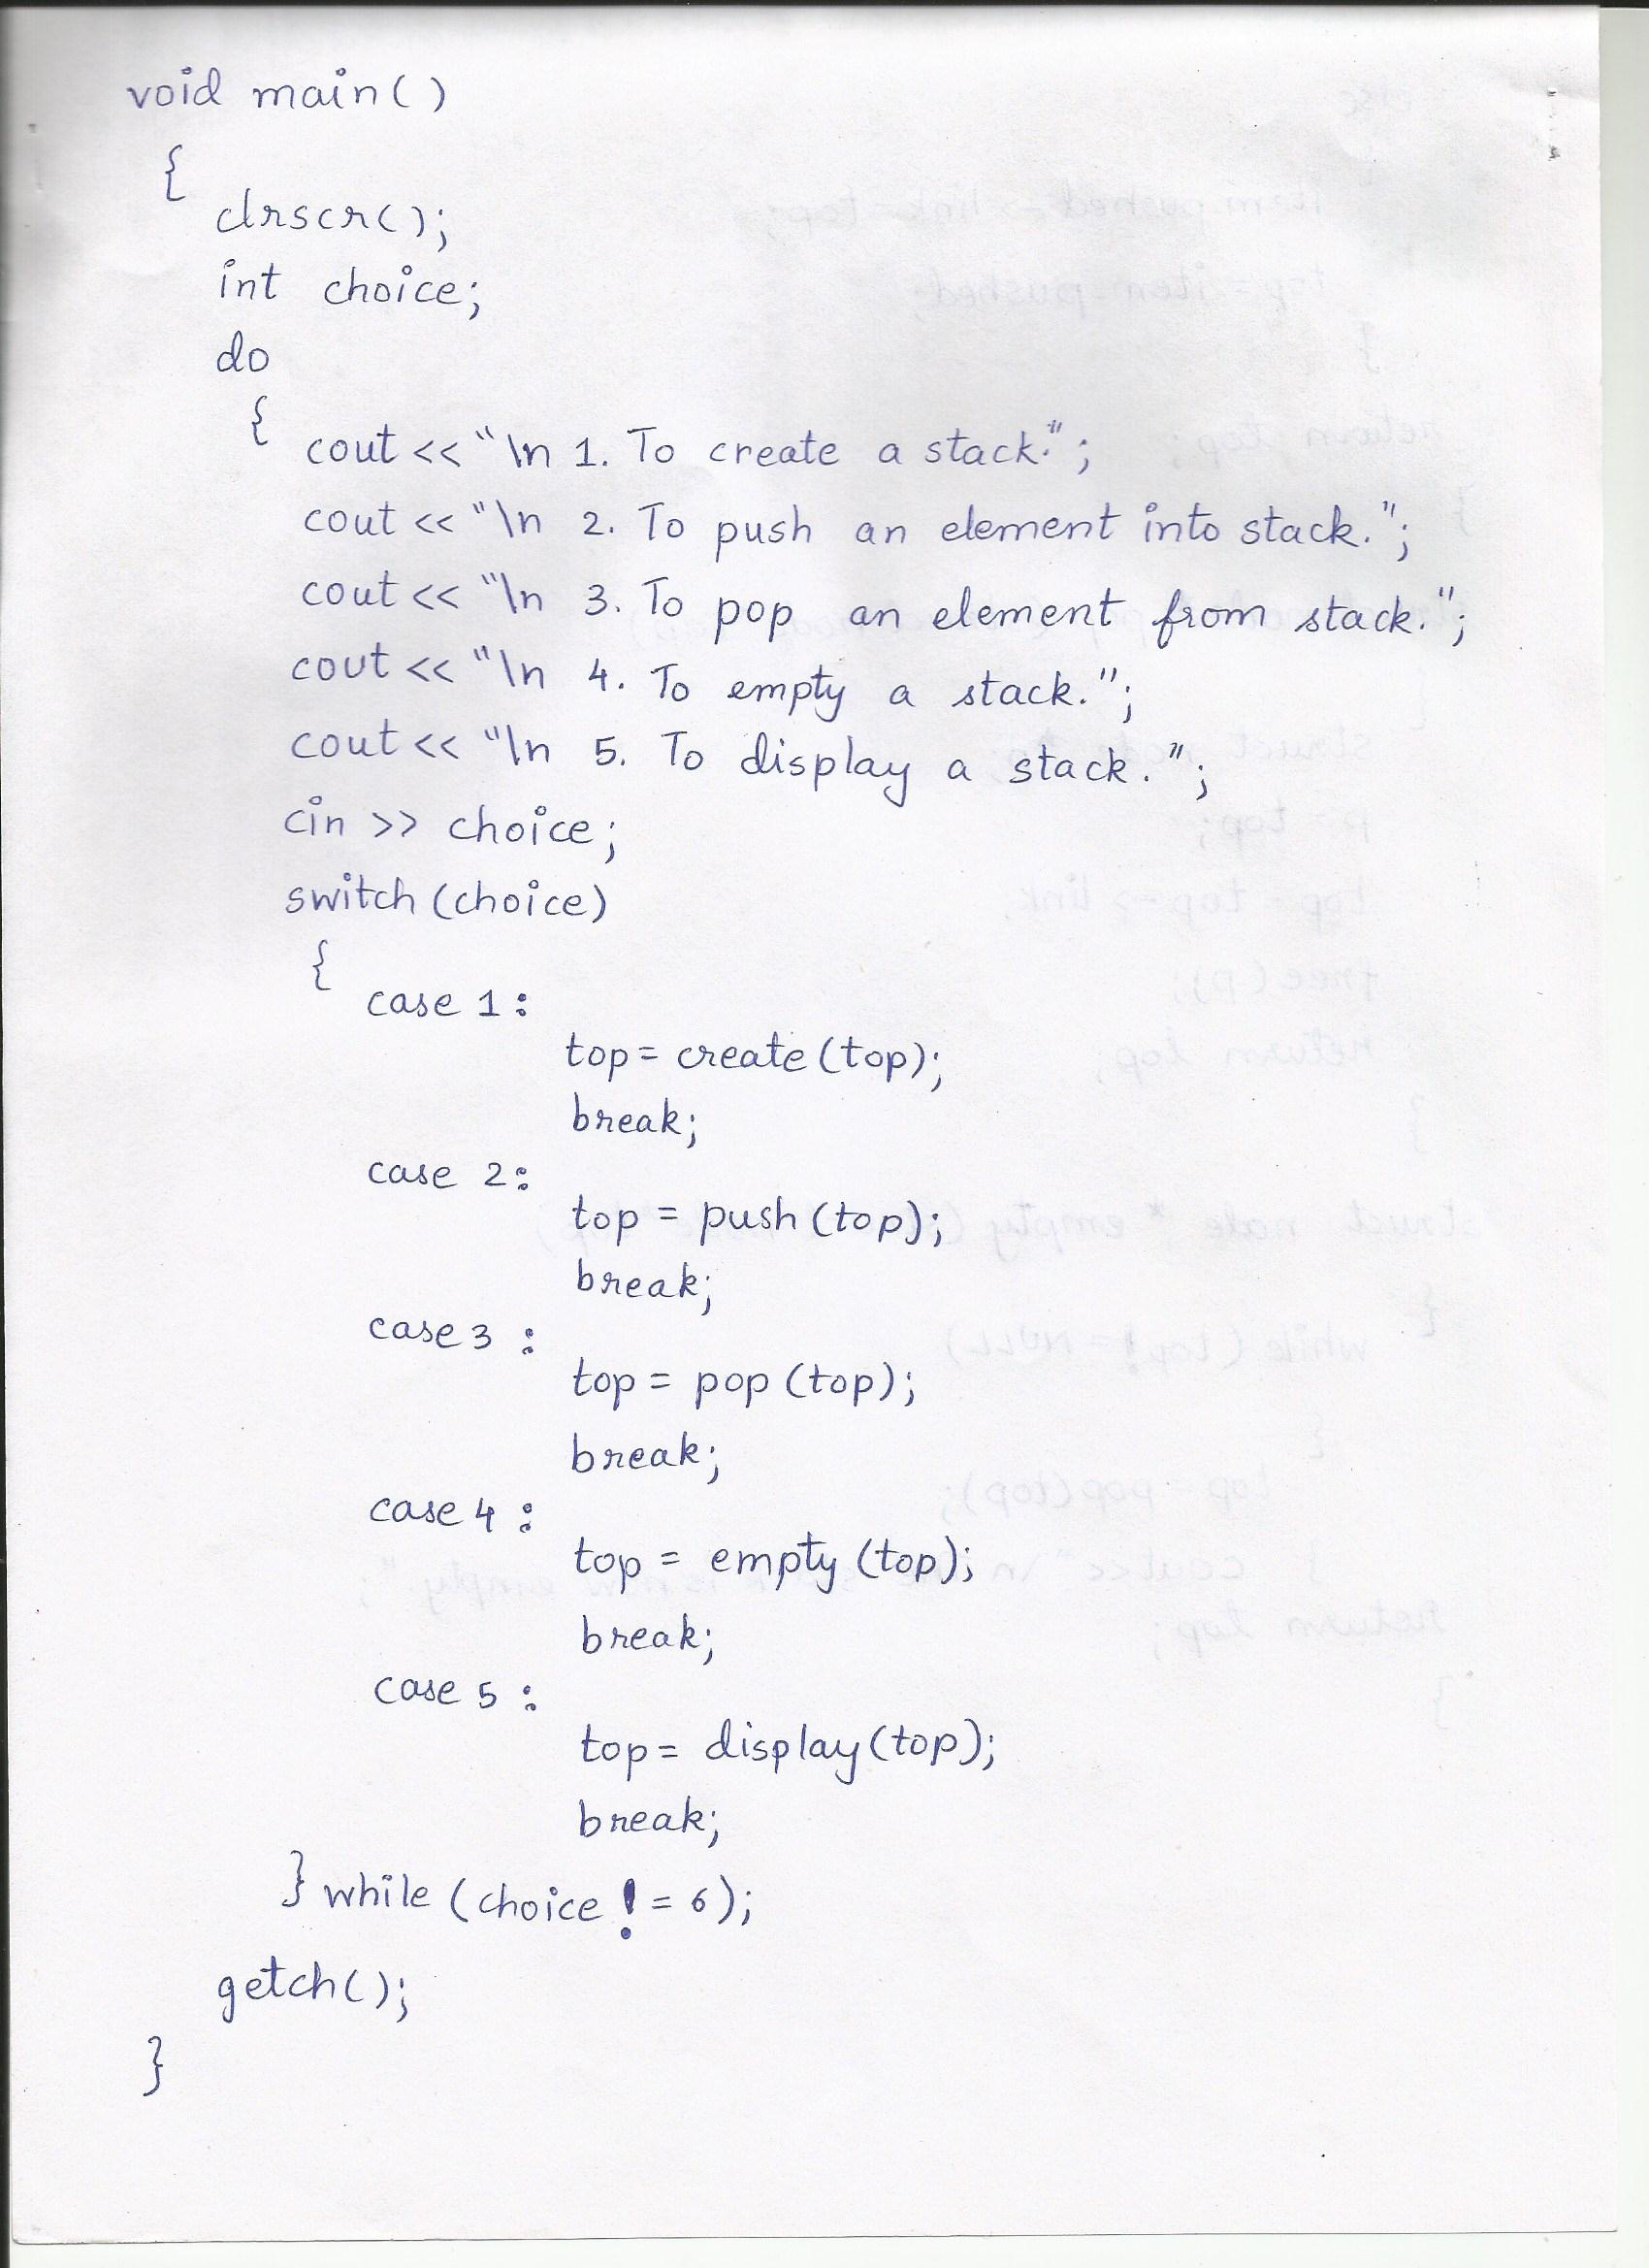 void main()
{
clrscr();
int choice;
do
{
cout << "\n 1. To create a stack.";
cout << "\n 2. To push an element into stack.";
cout << "\n 3. To pop an element from stack.";
cout << "\n 4. To empty a stack.";
cout << "\n 5. To display a stack.";
cin >> choice;
switch (choice)
{
case 1:
top = create (top);
break;
case 2:
top = push (top);
break;
case 3 :
top = pop (top);
break;
case 4 :
top = empty (top);
break;
case 5 :
top = display (top);
break;
} while (choice != 6);
getch();
}